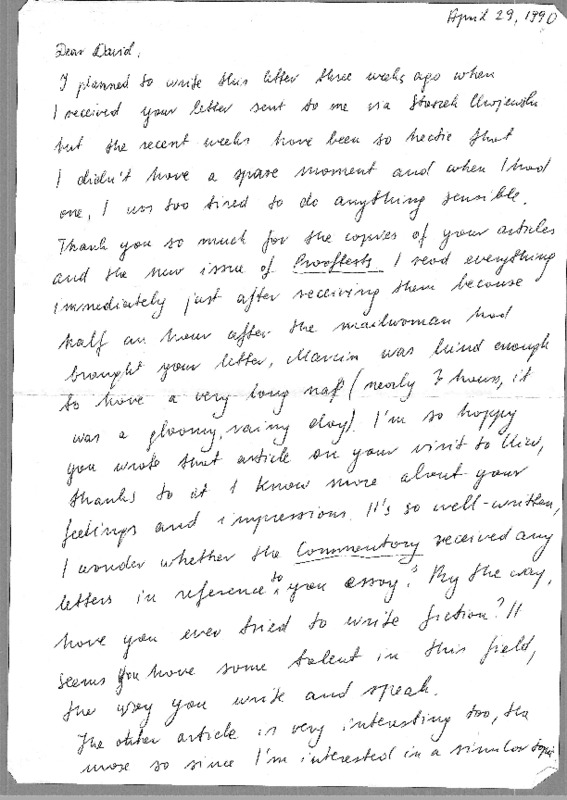 April 29, 1990
Dear David,
I planned to write this letter three weeks ago when
I received your letter sent to me via Staszek
but the recent weeks have been so hectic that
I didn't have a spare moment and when I had
one, I was too tired to do anything sensible.
Thank you so much for the copies of your articles
and the new issue of Prooftexts I read everything
immediately just after receiving them because
half an hour after the mailwoman had
brought your letter, Marcin was kind enough
to have a very long nap (nearly 3 hours, it
was a gloomy, rainy day). I'm so happy
you wrote that article on your visit to
thanks to it I know more about your
feelings and impressions. It's so well-written,
I wonder whether the Commentary received any
letters in reference to you essay? By the way,
have you ever tried to write fiction? It
seems you have some talent in this field,
the way you write and speak.
The other article is very interesting too, the
more so since I'm interested in a similar topic